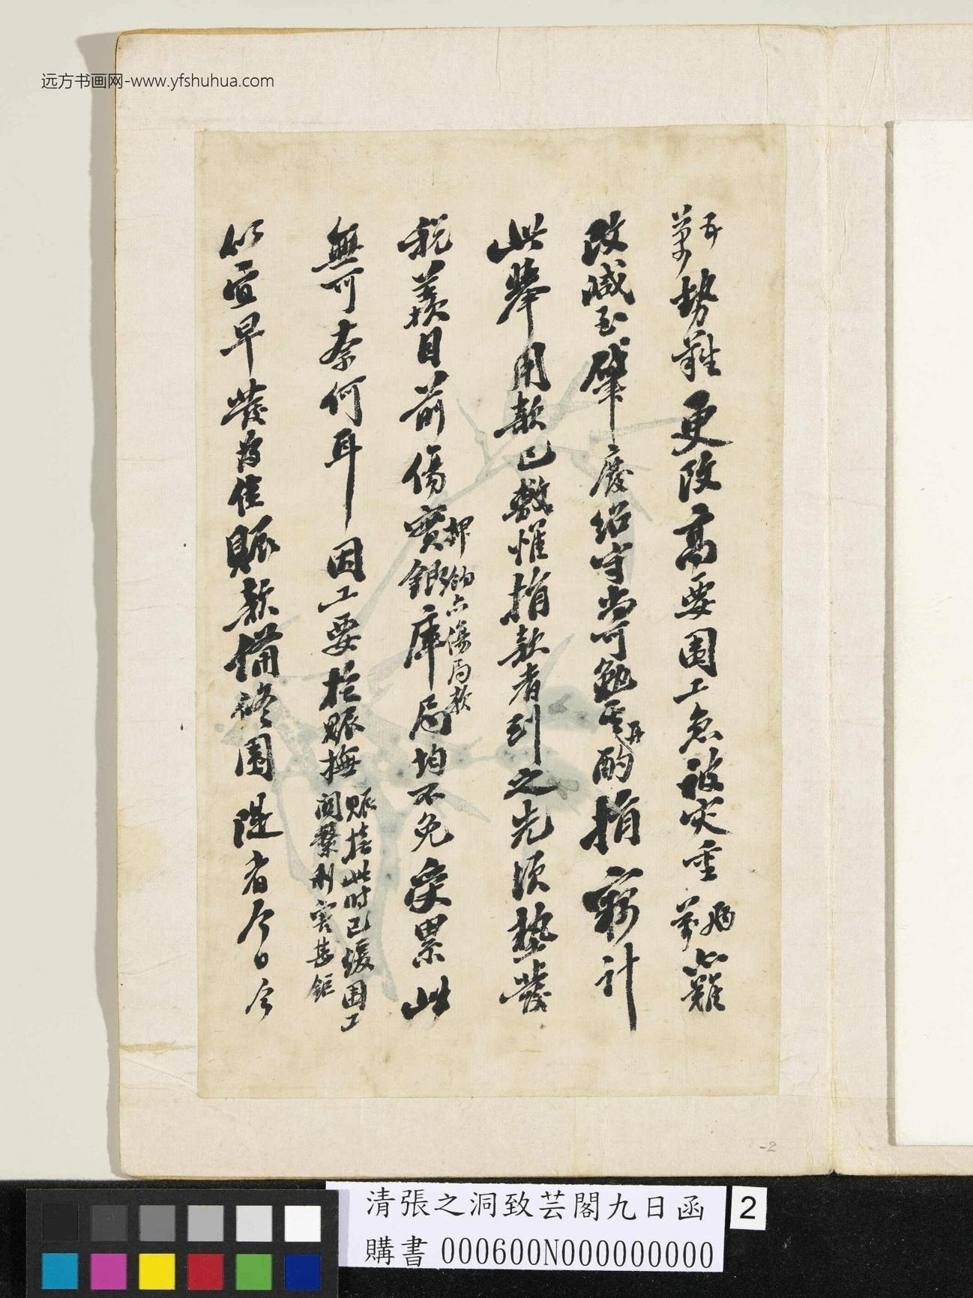 远方书画网-www.yfshuhua.com
五萬勢難更改高要圍工急被災重萬必難
改減至肇慶紹守尚可勉再酌捐富計
此舉用款已數惟捐款者到之先須墊發
税羨目前傷實銀庫局均不免受累此
押餉亦傷局款
無可奈何耳 因工要於賑撫
賑捐此時已緩圍工
關繫利害甚鉅
似宜早發為佳賑款備修圍隄者今日今
-2
清張之洞致芸閣九日函
購書 000600N000000000
2